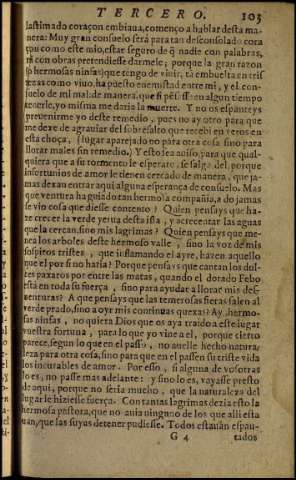 TERCERO. 103
lastimado coraçon embiaua, començo a hablar desta ma
nera: Muy gran consuelo sera para tan desconsolado cora
çon como este mio, estar seguro de q̃ nadie con palabras,
ni con obras pretendiesse darmele; porque la gran razon
(o hermosas ninfas) que tengo de viuir, tã embuelta en tris
tezas como viuo, ha puesto enemistad entre mi, y el con-
suelo de mi mal: de manera, que si pẽsasse en algun tiempo
tenerle, yo misma me daria la muerte. Y no os espanteys
preuenirme yo deste remedio, pues no ay otro para que
me dexe de agrauiar del sobresalto que recebi en veros en
esta choça, (lugar aparejado no para otra cosa sino para
llorar males sin remedio.) Y esto sea auiso, para que qual-
quiera que a su tormento le esperare, se salga del, porque
infortunios de amor le tienen cercado de manera, que ja-
mas dexan entrar aqui alguna esperança de consuelo. Mas
que ventura ha guiado tan hermosa compañia, a do jamas
se vio cosa que diesse contento? Quien pensays que ha-
ze crecer la verde yerua desta isla, y acrecentar las aguas
que la cercan, sino mis lagrimas? Quien pensays que me-
nea los arboles deste hermoso valle, sino la voz de mis
sospiros tristes, que inflamando el ayre, hazen aquello
que el por si no haria? Porque pensays que cantan los dul-
ces paxaros por entre las matas, quando el dorado Febo
està en toda su fuerça, sino para ayudar a llorar mis des-
uenturas? A que pensays que las temerosas fieras salen al
verde prado, sino a oyr mis continuas quexas? Ay, hermo-
sas ninfas, no quiera Dios que os aya traido a este lugar
vuestra fortuna, para lo que yo vine a el, porque cierto
parece, segun lo que en el passo, no auelle hecho natura-
leza para otra cosa, sino para que en el passen su triste vida
los incurables de amor. Por esso, si alguna de vosotras
lo es, no passe mas adelante: y si no lo es, vayasse presto
de aqui, porque no seria mucho, que la naturaleza del
lugar le hiziesse fuerça. Con tantas lagrimas dezia esto la
hermosa pastora, que no auia ninguno de los que alli esta
uan, que las suyas detener pudiesse. Todos estauãn espan-
G 4 tados